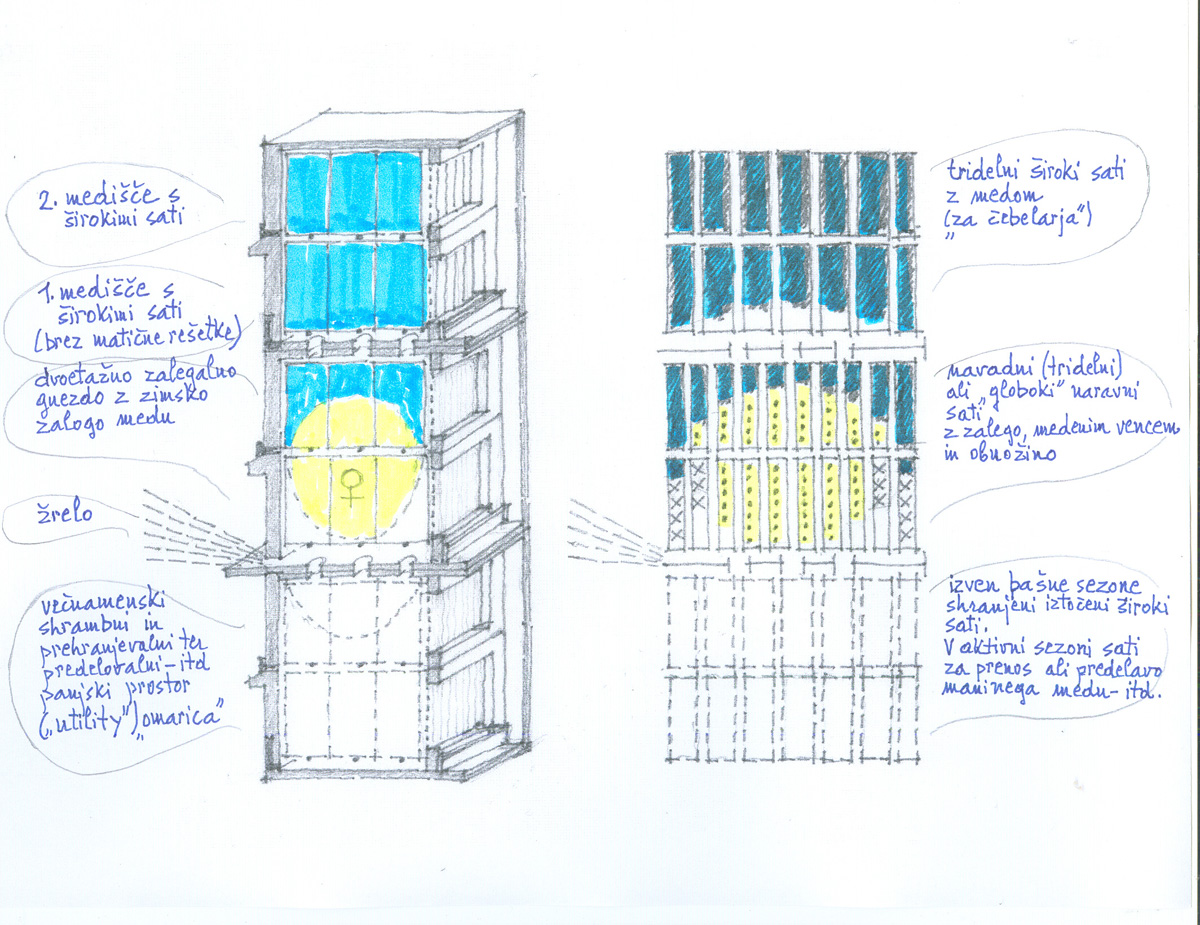 2. medišče s
širokimi sati
1. medišče s
širokimi sati
(brez matične rešetke)
dvoetažno zalegalno
gnezdo z zimsko
zalogo medu
žrelo
večnamenski
shrambni in
prehranjevalni ter
predelovalni-itd
panjski prostor
(„utility”) „omarica”
tridelni široki sati
z medom
(za čebelarja”)
„
navadni (tridelni)
ali „globoki” naravni
sati
z zalego, medenim vencem
in obnožino
izven pašne sezone
shranjeni iztočeni široki
sati.
V aktivni sezoni sati
za prenos ali predelavo
maninega medu-itd.